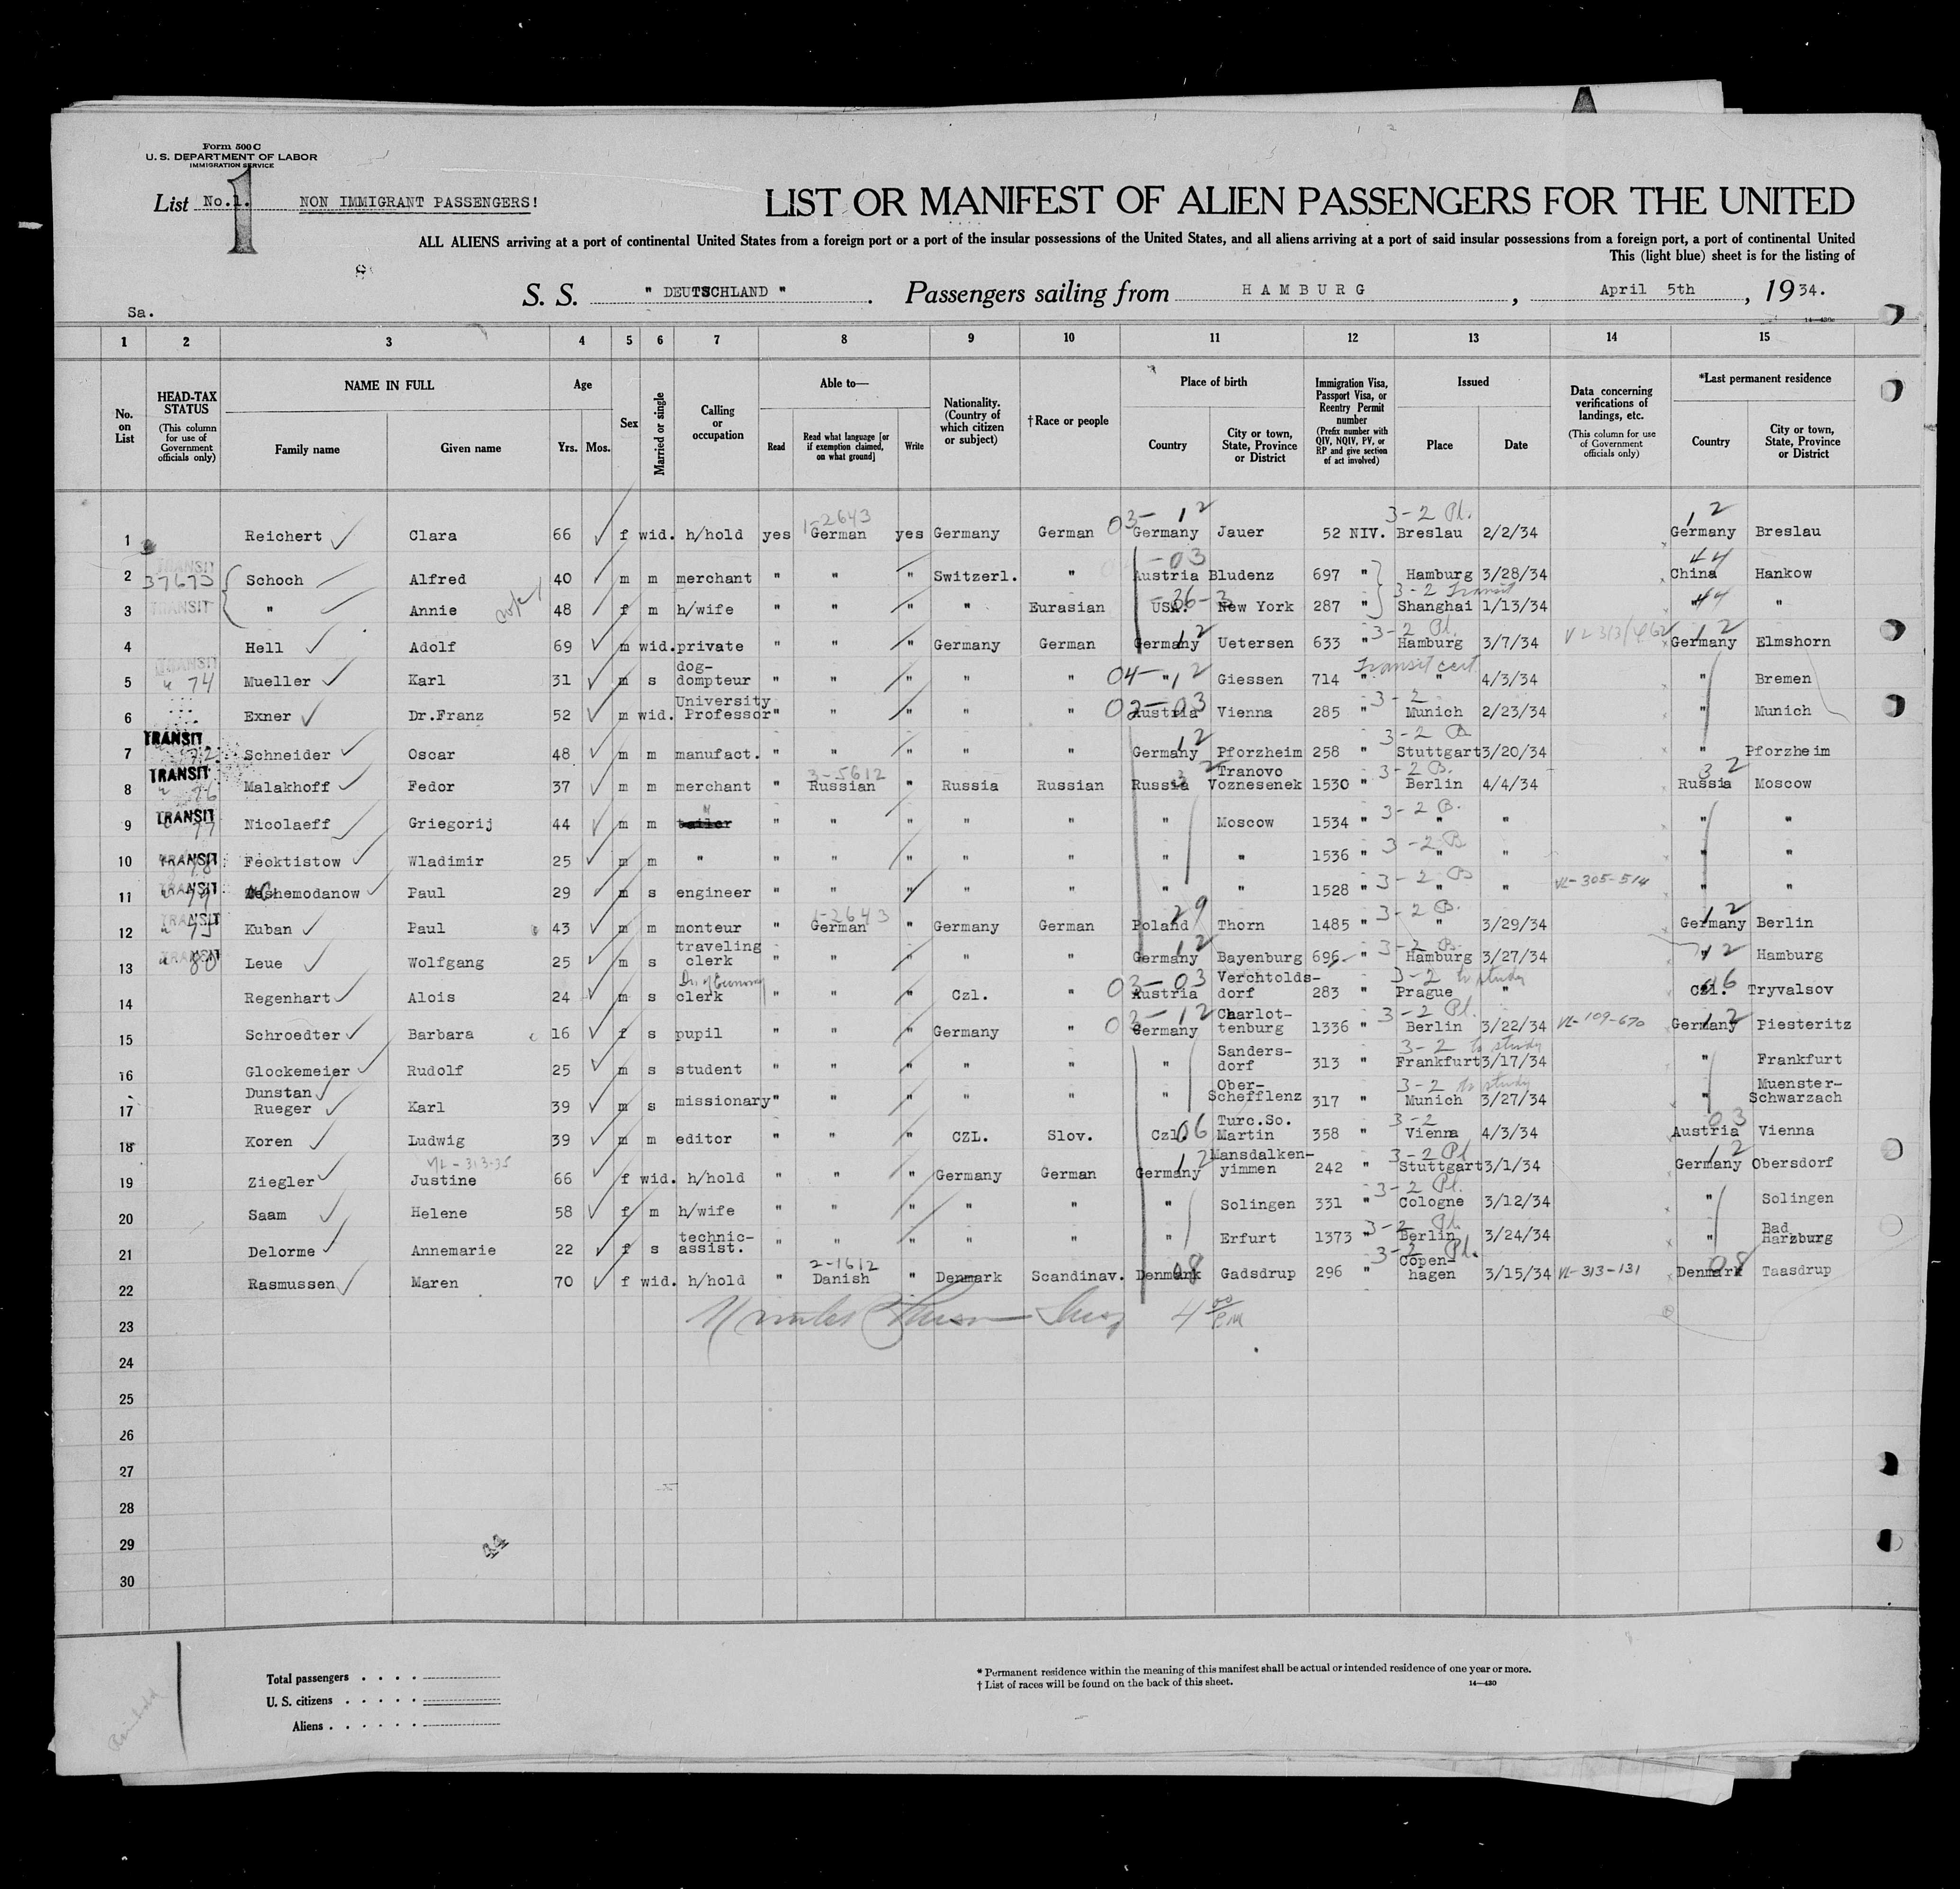 Form 500 C
U. S. DEPARTMENT OF LABOR
IMMIGRATION SERVICE
List No.1. NON IMMIGRANT PASSENGERS!
1
LIST OR MANIFEST OF ALIEN PASSENGERS FOR THE UNITED
ALL ALIENS arriving at a port of continental United States from a foreign port or a port of the insular possessions of the United States, and all aliens arriving at a port of said insular possessions from a foreign port, a port of continental United
This (light blue) sheet is for the listing of
S. S. " DEUTSCHLAND " . Passengers sailing from HAMBURG , April 5th , 1934.
Sa.
1 2 3 4 5 6 7 8 9 10 11 12 13 14 15
No. on List
HEAD-TAX STATUS (This column for use of Government officials only)
NAME IN FULL Family name Given name
Age Yrs. Mos.
Sex
Married or single
Calling or occupation
Able to— Read Read what language [or if exemption claimed, on what ground] Write
Nationality. (Country of which citizen or subject)
†Race or people
Place of birth Country City or town, State, Province or District
Immigration Visa, Passport Visa, or Reentry Permit number (Prefix number with QIV, NQIV, PV, or RP and give section of act involved)
Issued Place Date
Data concerning verifications of landings, etc. (This column for use of Government officials only)
*Last permanent residence Country City or town, State, Province or District
1-2643 03- 12 3-2 Pl. 12
1 Reichert Clara 66 f wid. h/hold yes German yes Germany German Germany Jauer 52 NIV. Breslau 2/2/34 Germany Breslau
TRANSIT -03 44
2 37673 Schoch Alfred 40 m m merchant " " " Switzerl. " Austria Bludenz 697 " Hamburg 3/28/34 China Hankow
-36-3 3-2 Transit 44
3 TRANSIT " Annie 48 f m h/wife " " " " Eurasian USA. New York 287 " Shanghai 1/13/34 " "
12 3-2 Pl. 12
4 Hell Adolf 69 m wid. private " " " Germany German Germany Uetersen 633 " Hamburg 3/7/34 Germany Elmshorn
TRANSIT 04- 12 Transit cert
5 " 74 Mueller Karl 31 m s dog-dompteur " " " " " " Giessen 714 " " 4/3/34 " Bremen
02-03 3-2
6 Exner Dr.Franz 52 m wid. University Professor " " " " " Austria Vienna 285 " Munich 2/23/34 " Munich
TRANSIT 12 3-2 B
7 Schneider Oscar 48 m m manufact. " " " " " Germany Pforzheim 258 " Stuttgart 3/20/34 " Pforzheim
TRANSIT 3-5612 32 3-2 B. 32
8 " 76 Malakhoff Fedor 37 m m merchant " Russian " Russia Russian Russia Tranovo Voznesenek 1530 " Berlin 4/4/34 Russia Moscow
TRANSIT 3-2 B.
9 " 77 Nicolaeff Griegorij 44 m m " " " " " " " Moscow 1534 " " " " "
TRANSIT 3-2 B
10 Feoktistow Wladimir 25 m m " " " " " " " " 1536 " " " " "
TRANSIT 3-2 B
11 " 79 Paul 29 m s engineer " " " " " " " 1528 " " " VL-305-514 " "
TRANSIT 1-2643 29 3-2 B. 12
12 " 75 Kuban Paul 43 m m monteur " German " Germany German Poland Thorn 1485 " " 3/29/34 Germany Berlin
TRANSIT 12 3-2 B. 12
13 " 80 Leue Wolfgang 25 m s traveling clerk " " " " " Germany Bayenburg 696 " Hamburg 3/27/34 " Hamburg
03-03 3-2 to study 06
14 Regenhart Alois 24 m s clerk " " " Czl. " Austria Verchtolds-dorf 283 " Prague " Czl. Tryvalsov
03-12 3-2 Pl. 12
15 Schroedter Barbara 16 f s pupil " " " Germany " Germany Charlot-tenburg 1336 " Berlin 3/22/34 VL-109-670 Germany Piesteritz
3-2 to study
16 Glockemeier Rudolf 25 m s student " " " " " " Sanders-dorf 313 " Frankfurt 3/17/34 " Frankfurt
3-2 to study
17 Dunstan Rueger Karl 39 m s missionary " " " " " " Ober-Schefflenz 317 " Munich 3/27/34 " Muenster-Schwarzach
06 3-2 03
18 Koren Ludwig 39 m m editor " " " CZL. Slov. Czl. Turc.So. Martin 358 " Vienna 4/3/34 Austria Vienna
VL-313-35 12 3-2 Pl 12
19 Ziegler Justine 66 f wid. h/hold " " " Germany German Germany Mansdalken-yimmen 242 " Stuttgart 3/1/34 Germany Obersdorf
3-2 Pl.
20 Saam Helene 58 f m h/wife " " " " " " Solingen 331 " Cologne 3/12/34 " Solingen
3-2 Pl.
21 Delorme Annemarie 22 f s technic-assist. " " " " " " Erfurt 1373 " Berlin 3/24/34 " Bad Harzburg
2-1612 08 3-2 Pl. 08
22 Rasmussen Maren 70 f wid. h/hold " Danish " Denmark Scandinav. Denmark Gadsdrup 296 " Copen-hagen 3/15/34 VL-313-131 Denmark Taasdrup
23 4 00 PM
24
25
26
27
28
29
30
44
Total passengers . . . .
U. S. citizens . . . . .
Aliens . . . . . .
* Permanent residence within the meaning of this manifest shall be actual or intended residence of one year or more.
† List of races will be found on the back of this sheet. 14—430